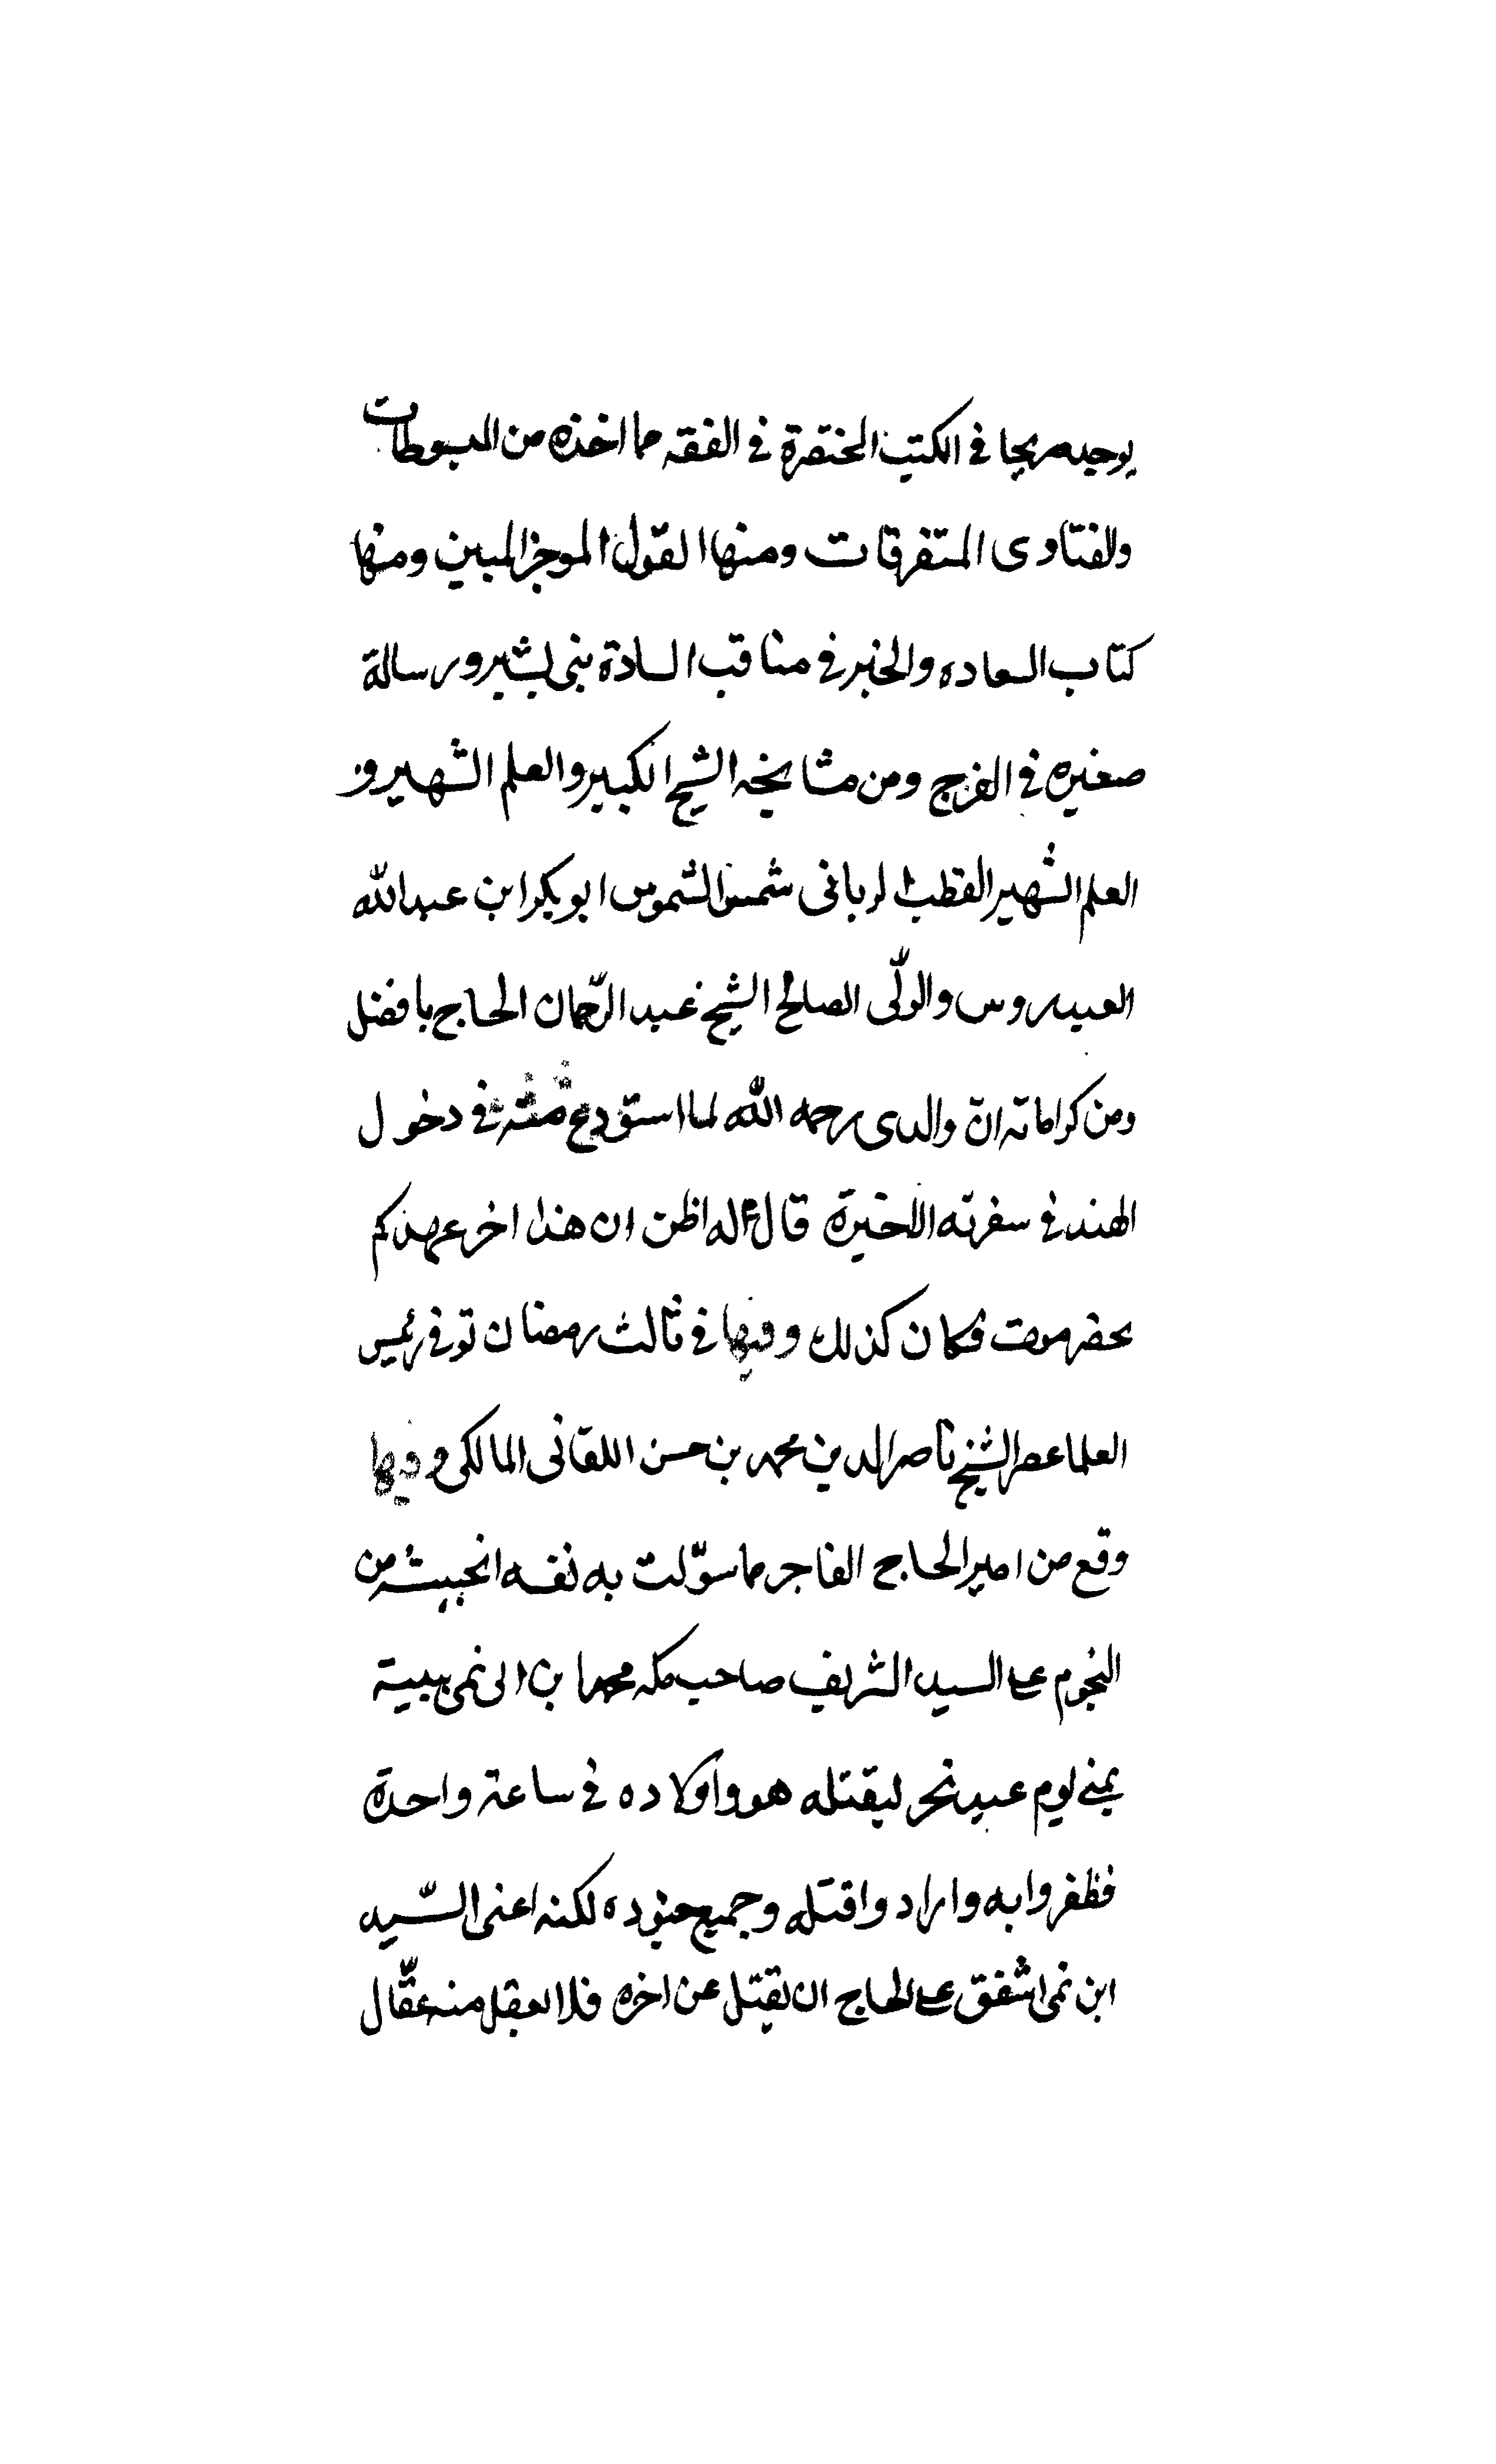 يوجد صريحا في الكتب المختصرة في الفقه مما اخذه من المبسوطات
والفتاوى المتفرقات ومنها القول الموجز المبين ومنها
كتاب السعاده والخير في مناقب السادة بنى بشير ورسالة
صغيره في الفرج ومن مشايخه الشيخ الكبير والعلم الشهير و
العلم الشهير القطب الربانى شمس الشموس ابو بكر ابن عبدالله
العيدروس والولّى الصالح الشيخ عبد الرّحمان الحاج بافضل
ومن كراماته انّ والدى رحمه الله لما استودع منه في دخول
الهند في سفرته الاخيرة قال له اظن ان هذا اخر عهدكم
بحضرموت فكان كذلك وفيها في ثالث رمضان توفي رئيس
العلما عصر الشيخ ناصر الدين محمد بن حسن اللقانى المالكى وفيها
وقع من امير الحاج الفاجر ما سوّلت به نفسه الخبيثه من
النجوم على السيد الشريف صاحب مكه محمد ابن ابى نمى ببيته
بمنى يوم عيد نحر ليقتله هو واولاده في ساعة واحدة
فظفروا به وارادوا قتله وجميع جنوده لكنه اعنى السّيد
ابن نمى اشفق على الحاج ان يقتل عن اخره فلا يعقل منه عقّال